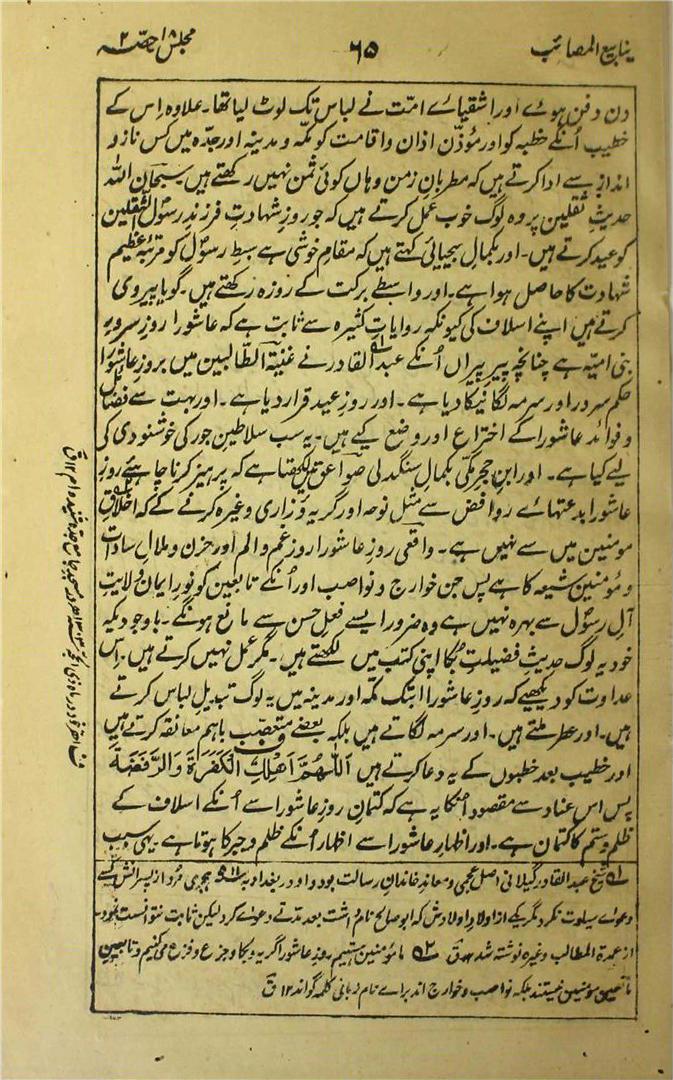 ینابیع المصائب
۶۵
مجلس ۱۸ حصہ ۲
دن دفن ہوئے اور اشقیائے امت نے لباس تک لوٹ لیا تھا۔ علاوہ اس کے
خطیب اُنکے خطبہ کو اور مؤذن اذان و اقامت کو مکہ و مدینہ اور جدّہ میں کس ناز و
انداز سے ادا کرتے ہیں کہ مطربانِ زمن وہاں کوئی ثمن نہیں رکھتے ہیں۔ سبحان اللہ
حدیثِ ثقلین پر وہ لوگ خوب عمل کرتے ہیں کہ جو روزِ شہادتِ فرزندِ رسول الثقلین
کو عید کرتے ہیں۔ اور بکمال بیحیائی کہتے ہیں کہ مقامِ خوشی ہے سبطِ رسول کو مرتبۂ عظیم
شہادت کا حاصل ہوا ہے۔ اور واسطے برکت کے روزہ رکھتے ہیں۔ گویا پیروی
کرتے ہیں اپنے اسلاف کی کیونکہ روایاتِ کثیرہ سے ثابت ہے کہ عاشورا روزِ سرورِ
بنی امیّہ ہے چنانچہ پیرِ پیراں اُنکے عبدالقادر نے غنیۃ الطالبین میں بروزِ عاشورا
حکم سرور اور سرمہ لگانیکا دیا ہے۔ اور روزِ عید قرار دیا ہے۔ اور بہت سے فضائل
و فوائد عاشورا کے اختراع اور وضع کیے ہیں۔ یہ سب سلاطینِ جور کی خوشنودی کی
لیے کیا ہے۔ اور ابنِ حجر مکّی بکمال سنگدلی صواعق میں لکھتا ہے کہ پرہیز کرنا چاہئے روزِ
عاشورا بدعتہائے روافض سے مثل نوحہ اور گریہ و زاری وغیرہ کرنے کے کہ اخلاقِ
مومنین میں سے نہیں ہے۔ واقعی روزِ عاشورا روزِ غم و الم اور حزن و ملالِ سادات
و مؤمنین شیعہ کا ہے پس جن خوارج و نواصب اور اُنکے تابعین کو نورِ ایمان ولایتِ
آلِ رسول سے بہرہ نہیں ہے وہ ضرور ایسے فعلِ حسن سے مانع ہونگے۔ باوجودیکہ
خود یہ لوگ حدیثِ فضیلتِ بکا اپنی کتب میں لکھتے ہیں۔ مگر عمل نہیں کرتے ہیں۔ اس
عداوت کو دیکھیے کہ روزِ عاشورا ابتک مکہ اور مدینہ میں یہ لوگ تبدیل لباس کرتے
ہیں۔ اور عطر ملتے ہیں۔ اور سرمہ لگاتے ہیں بلکہ بعضے متعصّب باہم معانقہ کرتے ہیں
اور خطیب بعد خطبوں کے یہ دعا کرتے ہیں اَللّٰهُمَّ اَهْلِكِ الْكَفَرَةَ وَالرَّفَضَةَ
پس اس عناد سے مقصود اُنکا یہ ہے کہ کتمانِ روزِ عاشورا سے اُنکے اسلاف کے
ظلم و ستم کا کتمان ہے۔ اور اظہارِ عاشورا سے اظہار اُنکے ظلم و جبر کا ہوتا ہے یہی سبب
۵۱ شیخ عبدالقادر گیلانی اصل عجمی و معاندِ خاندانِ رسالت بود و او در بغداد بہ ہجری مُرد از پسرانش کسے
دعوائے سیادت نکرد مگر یکے از اولادِ اولادش کہ ابو صالح نام داشت بعد مدتے دعوائے کرد لیکن ثابت نتوانست نمود
از عمدۃ المطالب وغیرہ نوشتہ شد ۱۲ ق ۵۲ ما مؤمنین ہستیم روزِ عاشورا گریہ و بکا و جزع و فزع می کنیم و تابعین
مومنین نیستند بلکہ نواصب و خوارج اند برائے نام زبانی کلمہ گو اند ۱۲ ق